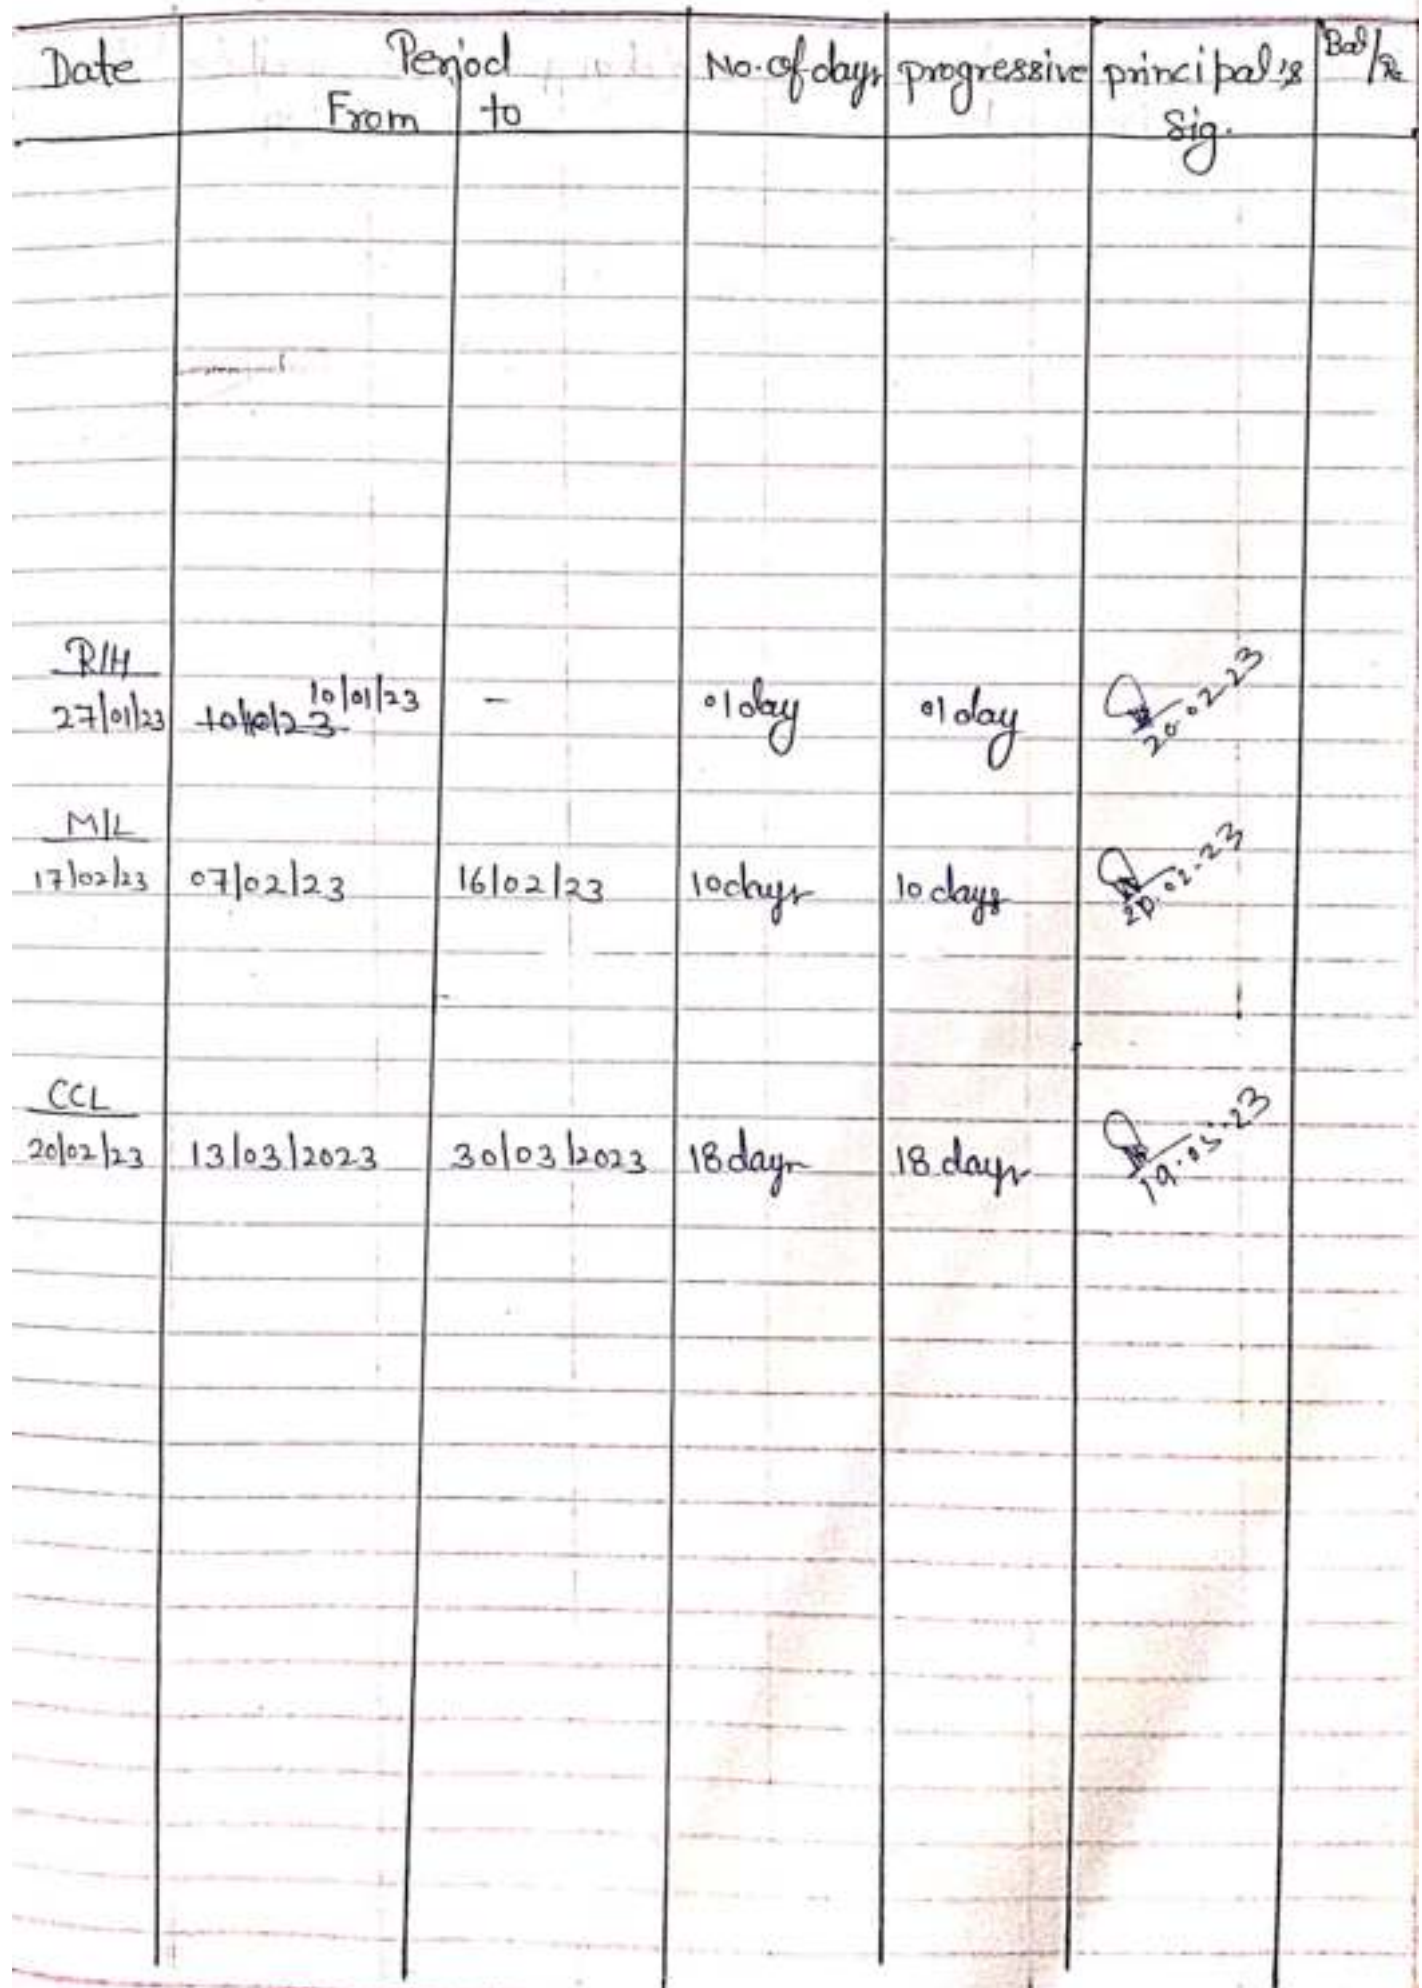 Date Period No. of days progressive principal's Bal/Re
From to Sig.
R/H
10/01/23
27/01/23 10/10/23 - 01 day 01 day 20.02.23
M/L
17/02/23 07/02/23 16/02/23 10 days 10 days 20.02.23
CCL
20/02/23 13/03/2023 30/03/2023 18 days 18 days 19.05.23